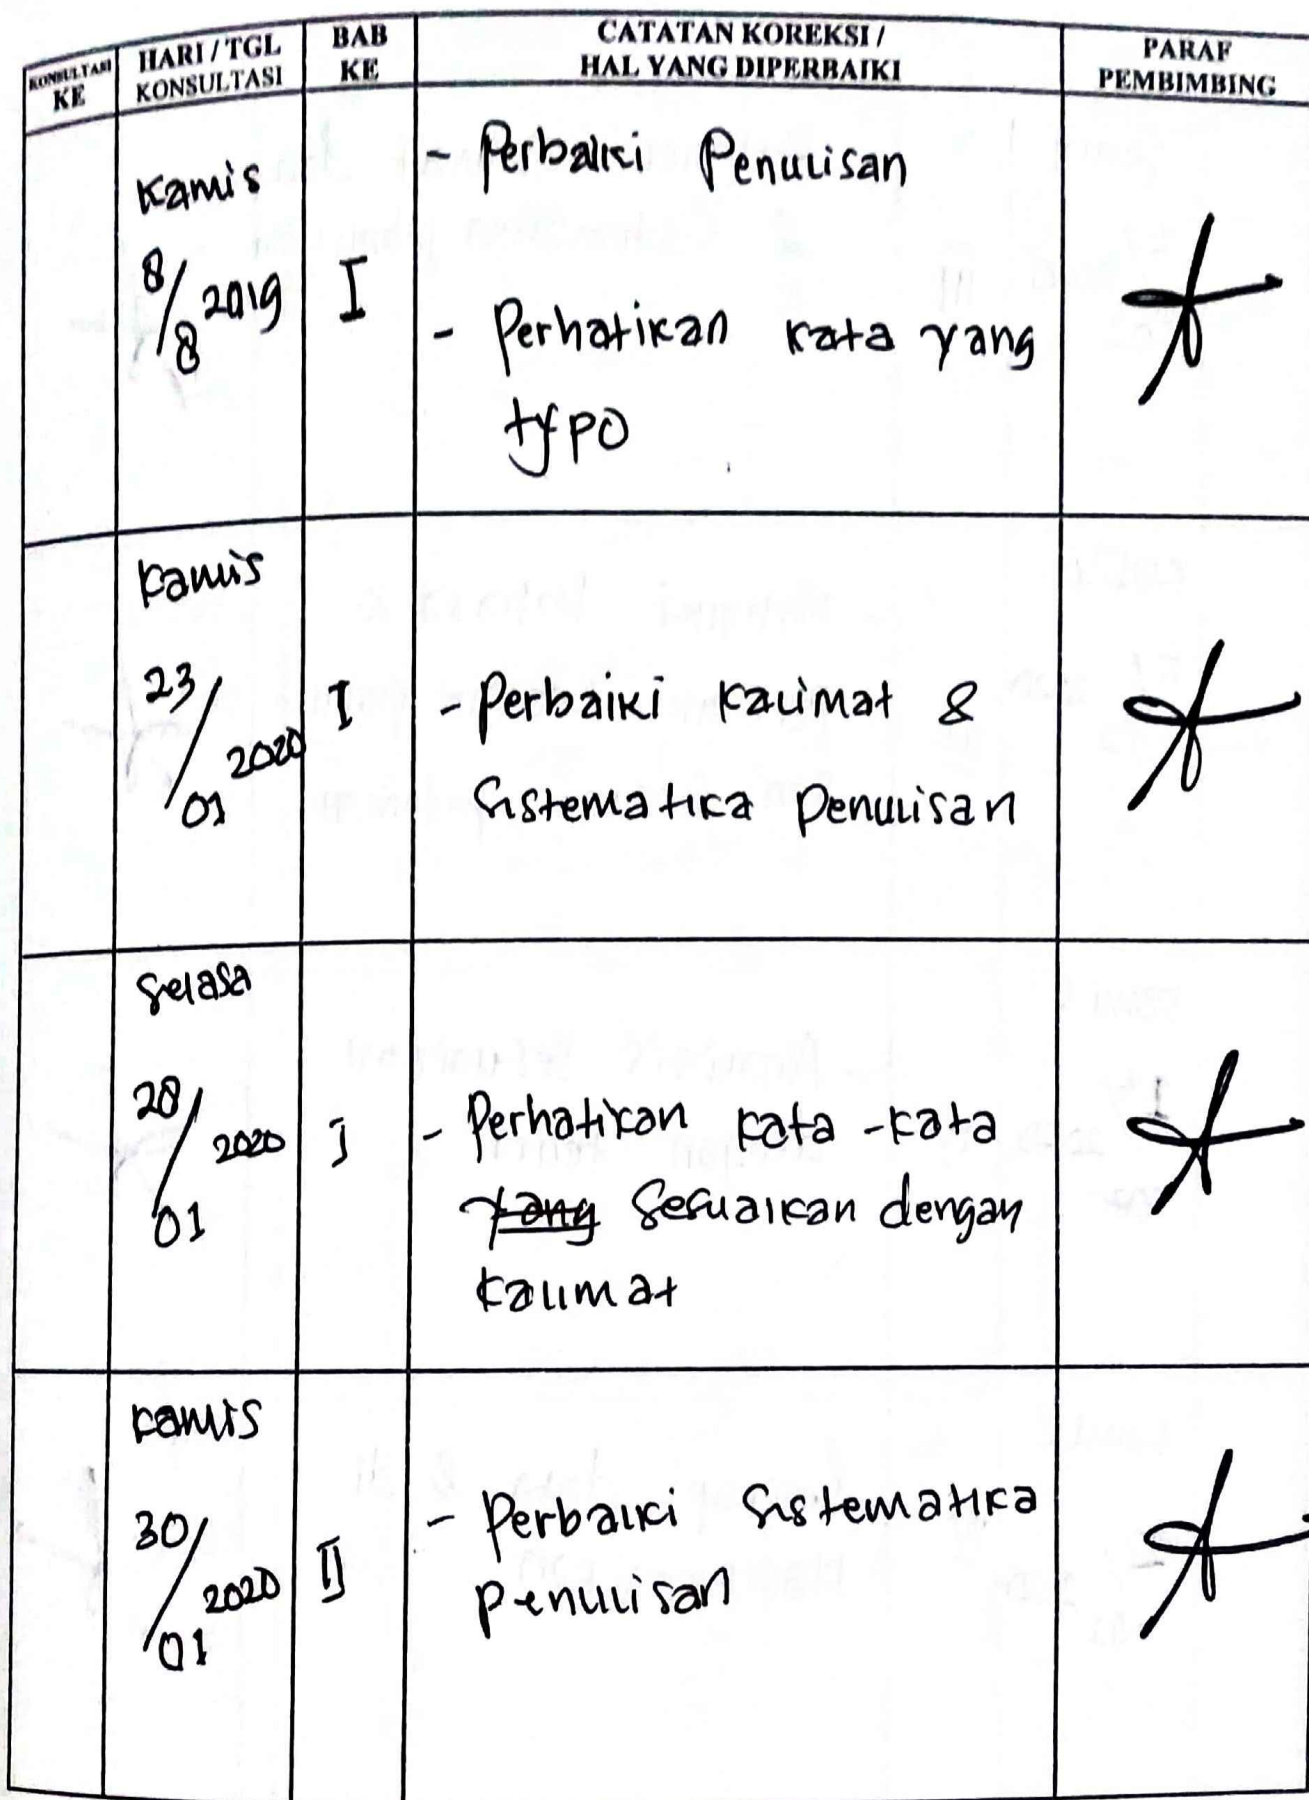 KONSULTASI KE
HARI / TGL KONSULTASI
BAB KE
CATATAN KOREKSI / HAL YANG DIPERBAIKI
PARAF PEMBIMBING
Kamis
8/8 2019
I
- Perbaiki Penulisan
- Perhatikan kata yang
typo
Kamis
23/01 2020
I
- Perbaiki kalimat &
Sistematika Penulisan
Selasa
28/01 2020
I
- Perhatikan kata-kata
yang Sesuaikan dengan
kalimat
Kamis
30/01 2020
II
- Perbaiki Sistematika
penulisan